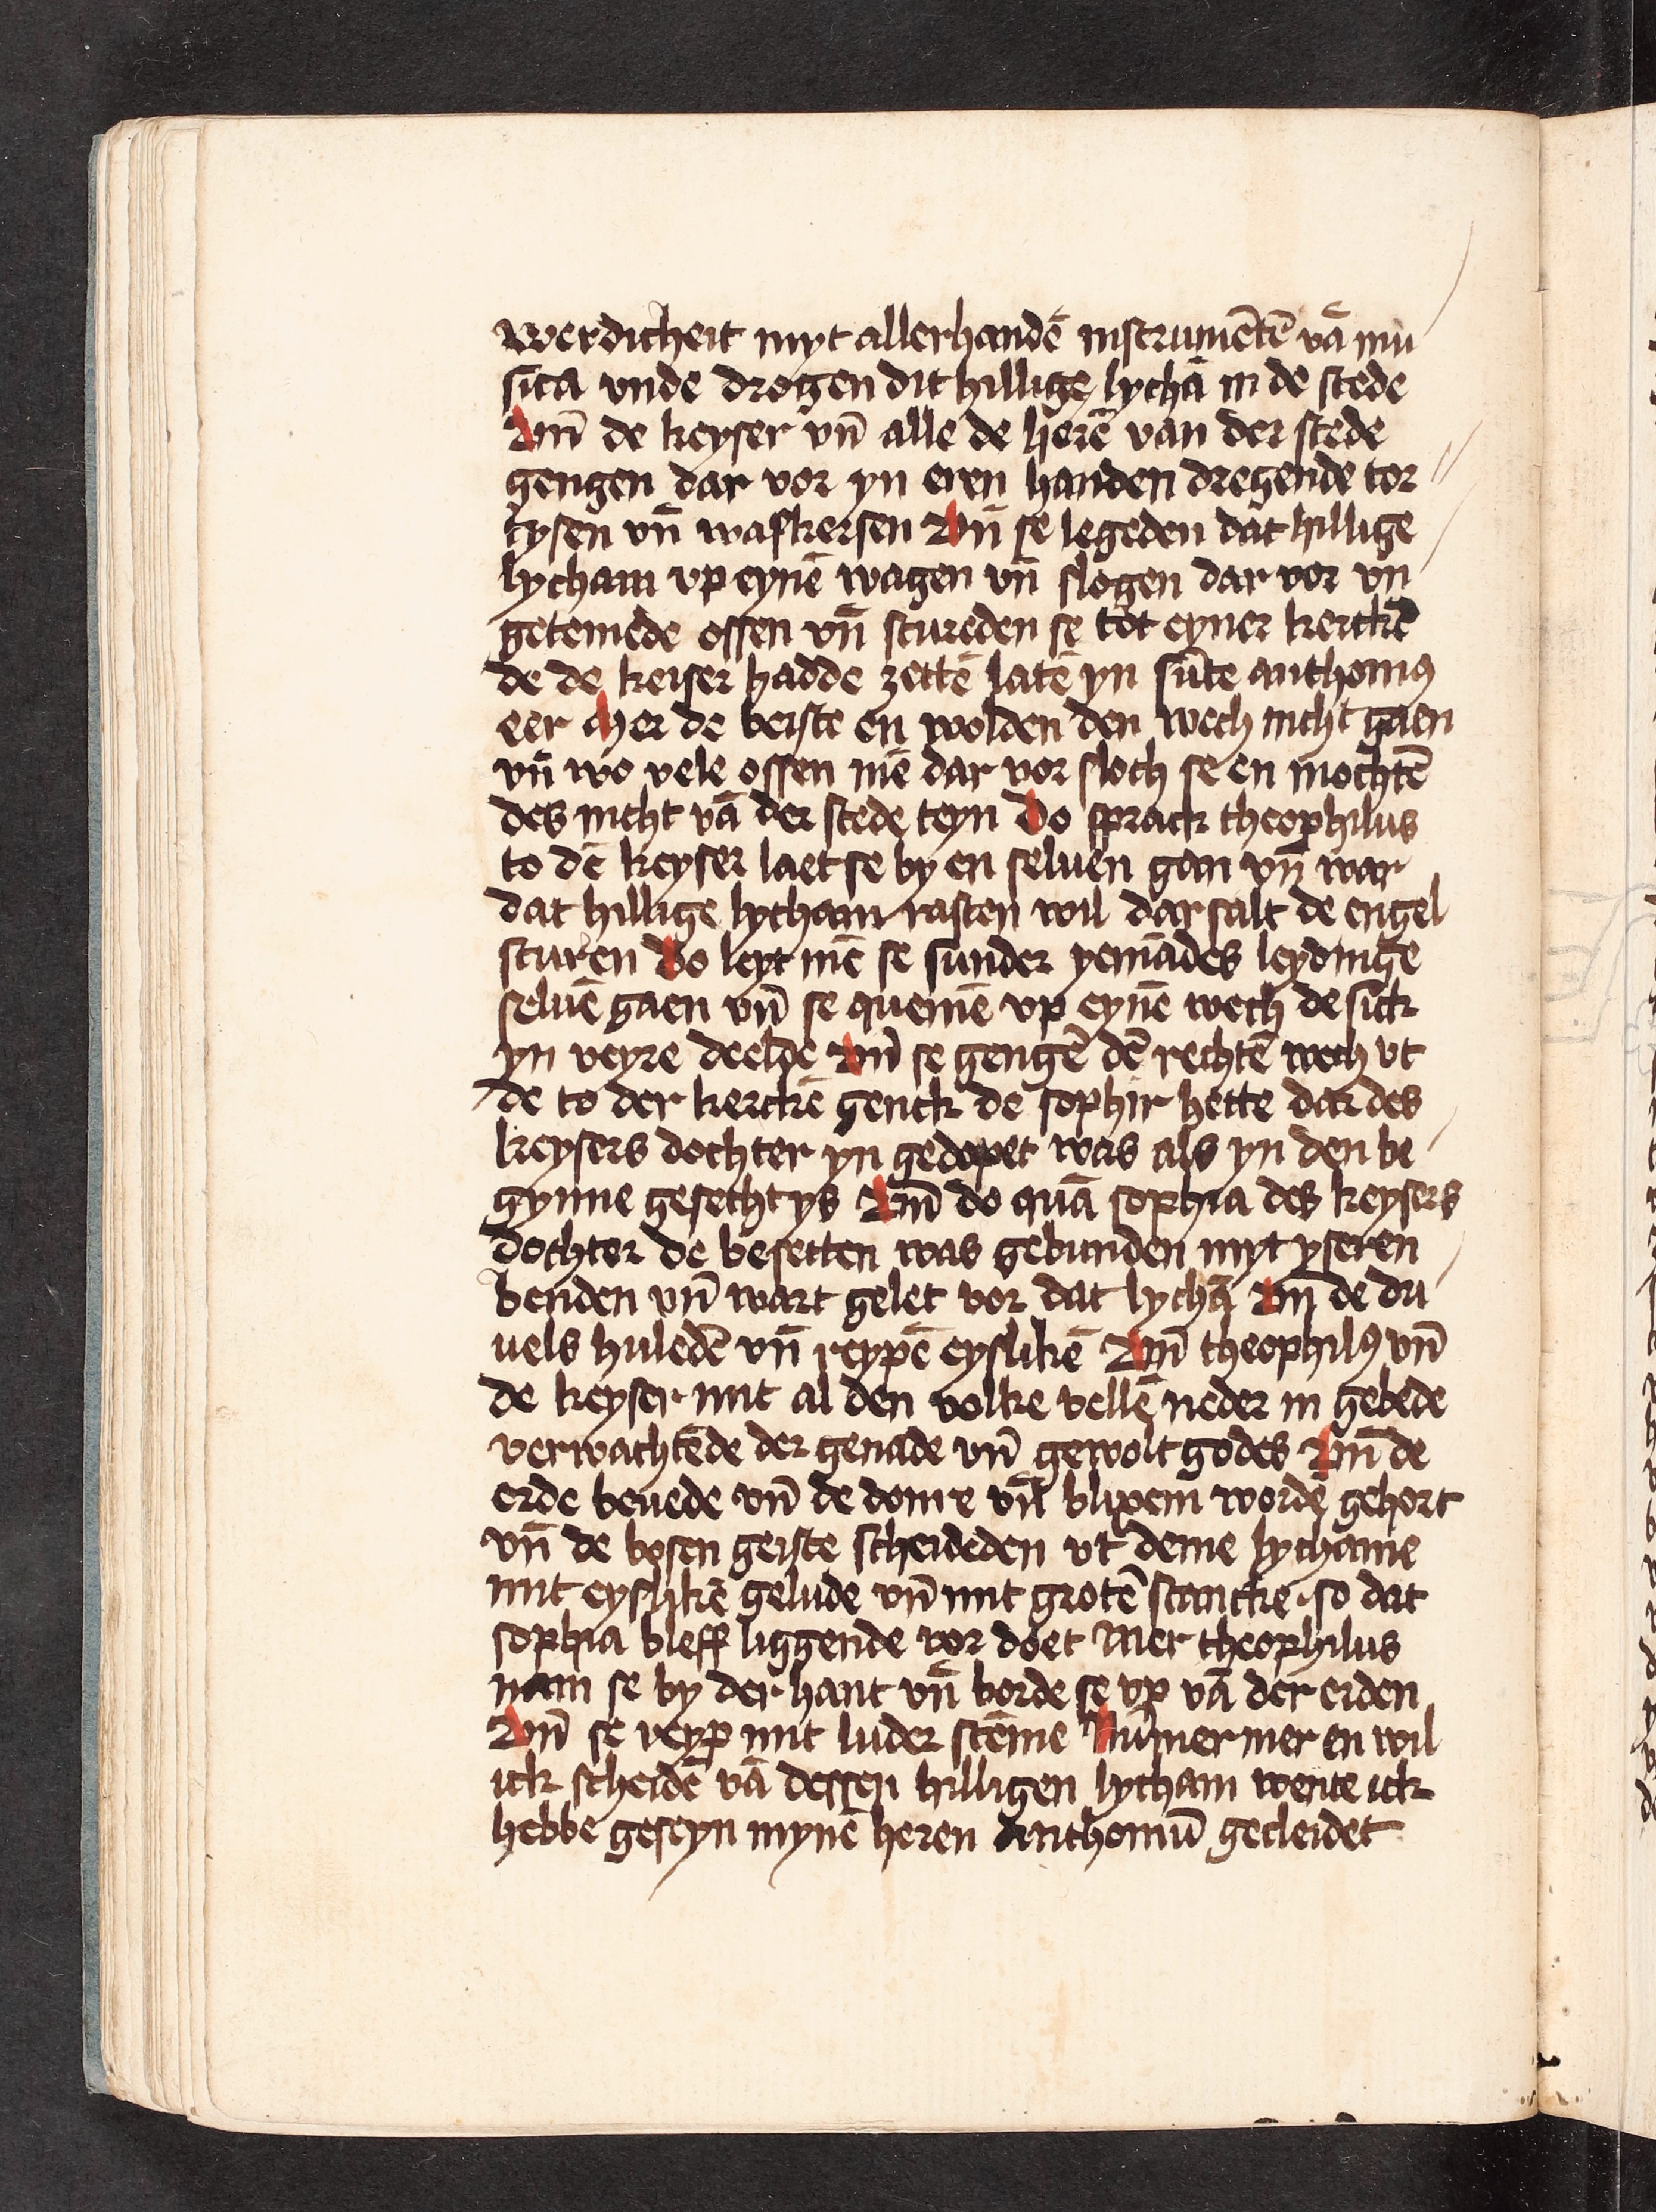 werdicheit myt allerhandē instrumētē vā mu
sica vnde drogen dit hillige lychā in de stede
Vn̄ de keyser vn̄ alle de herē van der stede
gengen dar vor yn eren handen dregende tor
tysen vn̄ waskersen Vn̄ se legeden dat hillige
lycham vp eynē wagen vn̄ slogen dar vor vn
getemede ossen vn̄ stureden se tot eyner kerckē
de de keiser hadde zettē latē yn sūte anthonius
eer Mer de beiste en wolden den wech nicht gaen
vn̄ wo vele ossen mē dar vor sloch se en mochtē
des nicht vā der stede teyn Do sprack theophilus
to dē keyser laet se by en seluen gan vn̄ war
dat hillige lycham rasten wil dar salt de engel
sturen Do leyt mē se sunder yemādes leydinge
seluē gaen vn̄ se quemē vp eynē wech de sick
yn veyre deelde Vn̄ se gengē dē rechtē wech vt
de to der kerckē genck de sophir hette dar des
keysers dochter yn gedopet was als yn den be
gynne gesecht ys Vn̄ do quā sophia des keysers
dochter de besetten was gebunden myt yseren
benden vn̄ wart gelet vor dat lychā Vn̄ de du
uels huledē vn̄ reypē eyslikē Vn̄ theophilꝰ vn̄
de keyser mit al den volke vellē neder in gebede
verwachtēde der genade vn̄ gewolt godes Vn̄ de
erde beuede vn̄ de donre vn̄ blixem wordē gehort
vn̄ de bosen geiste scheideden vt deme lychame
mit eyslikē gelude vn̄ mit grotē stancke so dat
sophia bleff liggende vor doet Mer theophilus
nam se by der hant vn̄ borde se vp vā der erden
Vn̄ se reyp mit luder stēme Nūmer mer en wil
ick scheidē vā dessen hilligen lycham wente ick
hebbe geseyn mynē heren Anthoniū gecleidet